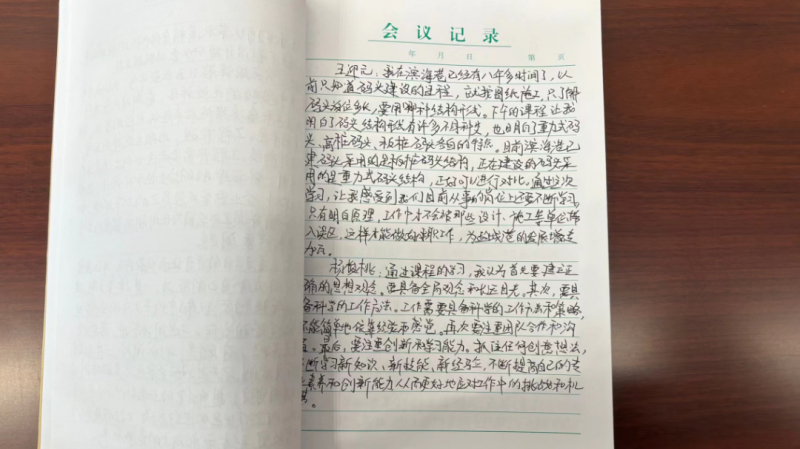 会议记录
年 月 日 第 页
：我在滨海港已经有八年多时间了，以
前只知道码头建设的过程，应按图纸施工，只了解
码头泊位多长，要用哪种结构形式。下午的课程让我
明白了码头结构形式有许多不同种类，也明白了重力式码
头、高桩码头、板桩码头各自的特点。目前滨海港已
建码头采用的是板桩码头结构，正在建设的码头采
用的是重力式码头结构，正好可以进行对比。通过这次
学习，让我感受到我们目前从事的岗位上还要不断学习，
只有明白原理，工作中才不会被那些设计、施工等单位带
入误区，这样才能做好本职工作，为港的发展增砖
加瓦。
：通过课程的学习，我认为首先要建立正
确的思想观念。要具备全局观念和长远目光。其次，要具
备科学的工作方法。工作需要具备科学的工作方法和策略，
不能简单地依靠经验和感觉。再次要注重团队合作和沟
通。最后，要注重创新和学习能力。关注任何创意想法，
不断学习新知识、新技能、新经验，不断提高自己的专
业素养和创新能力从而更好地应对工作中的挑战和机
遇。